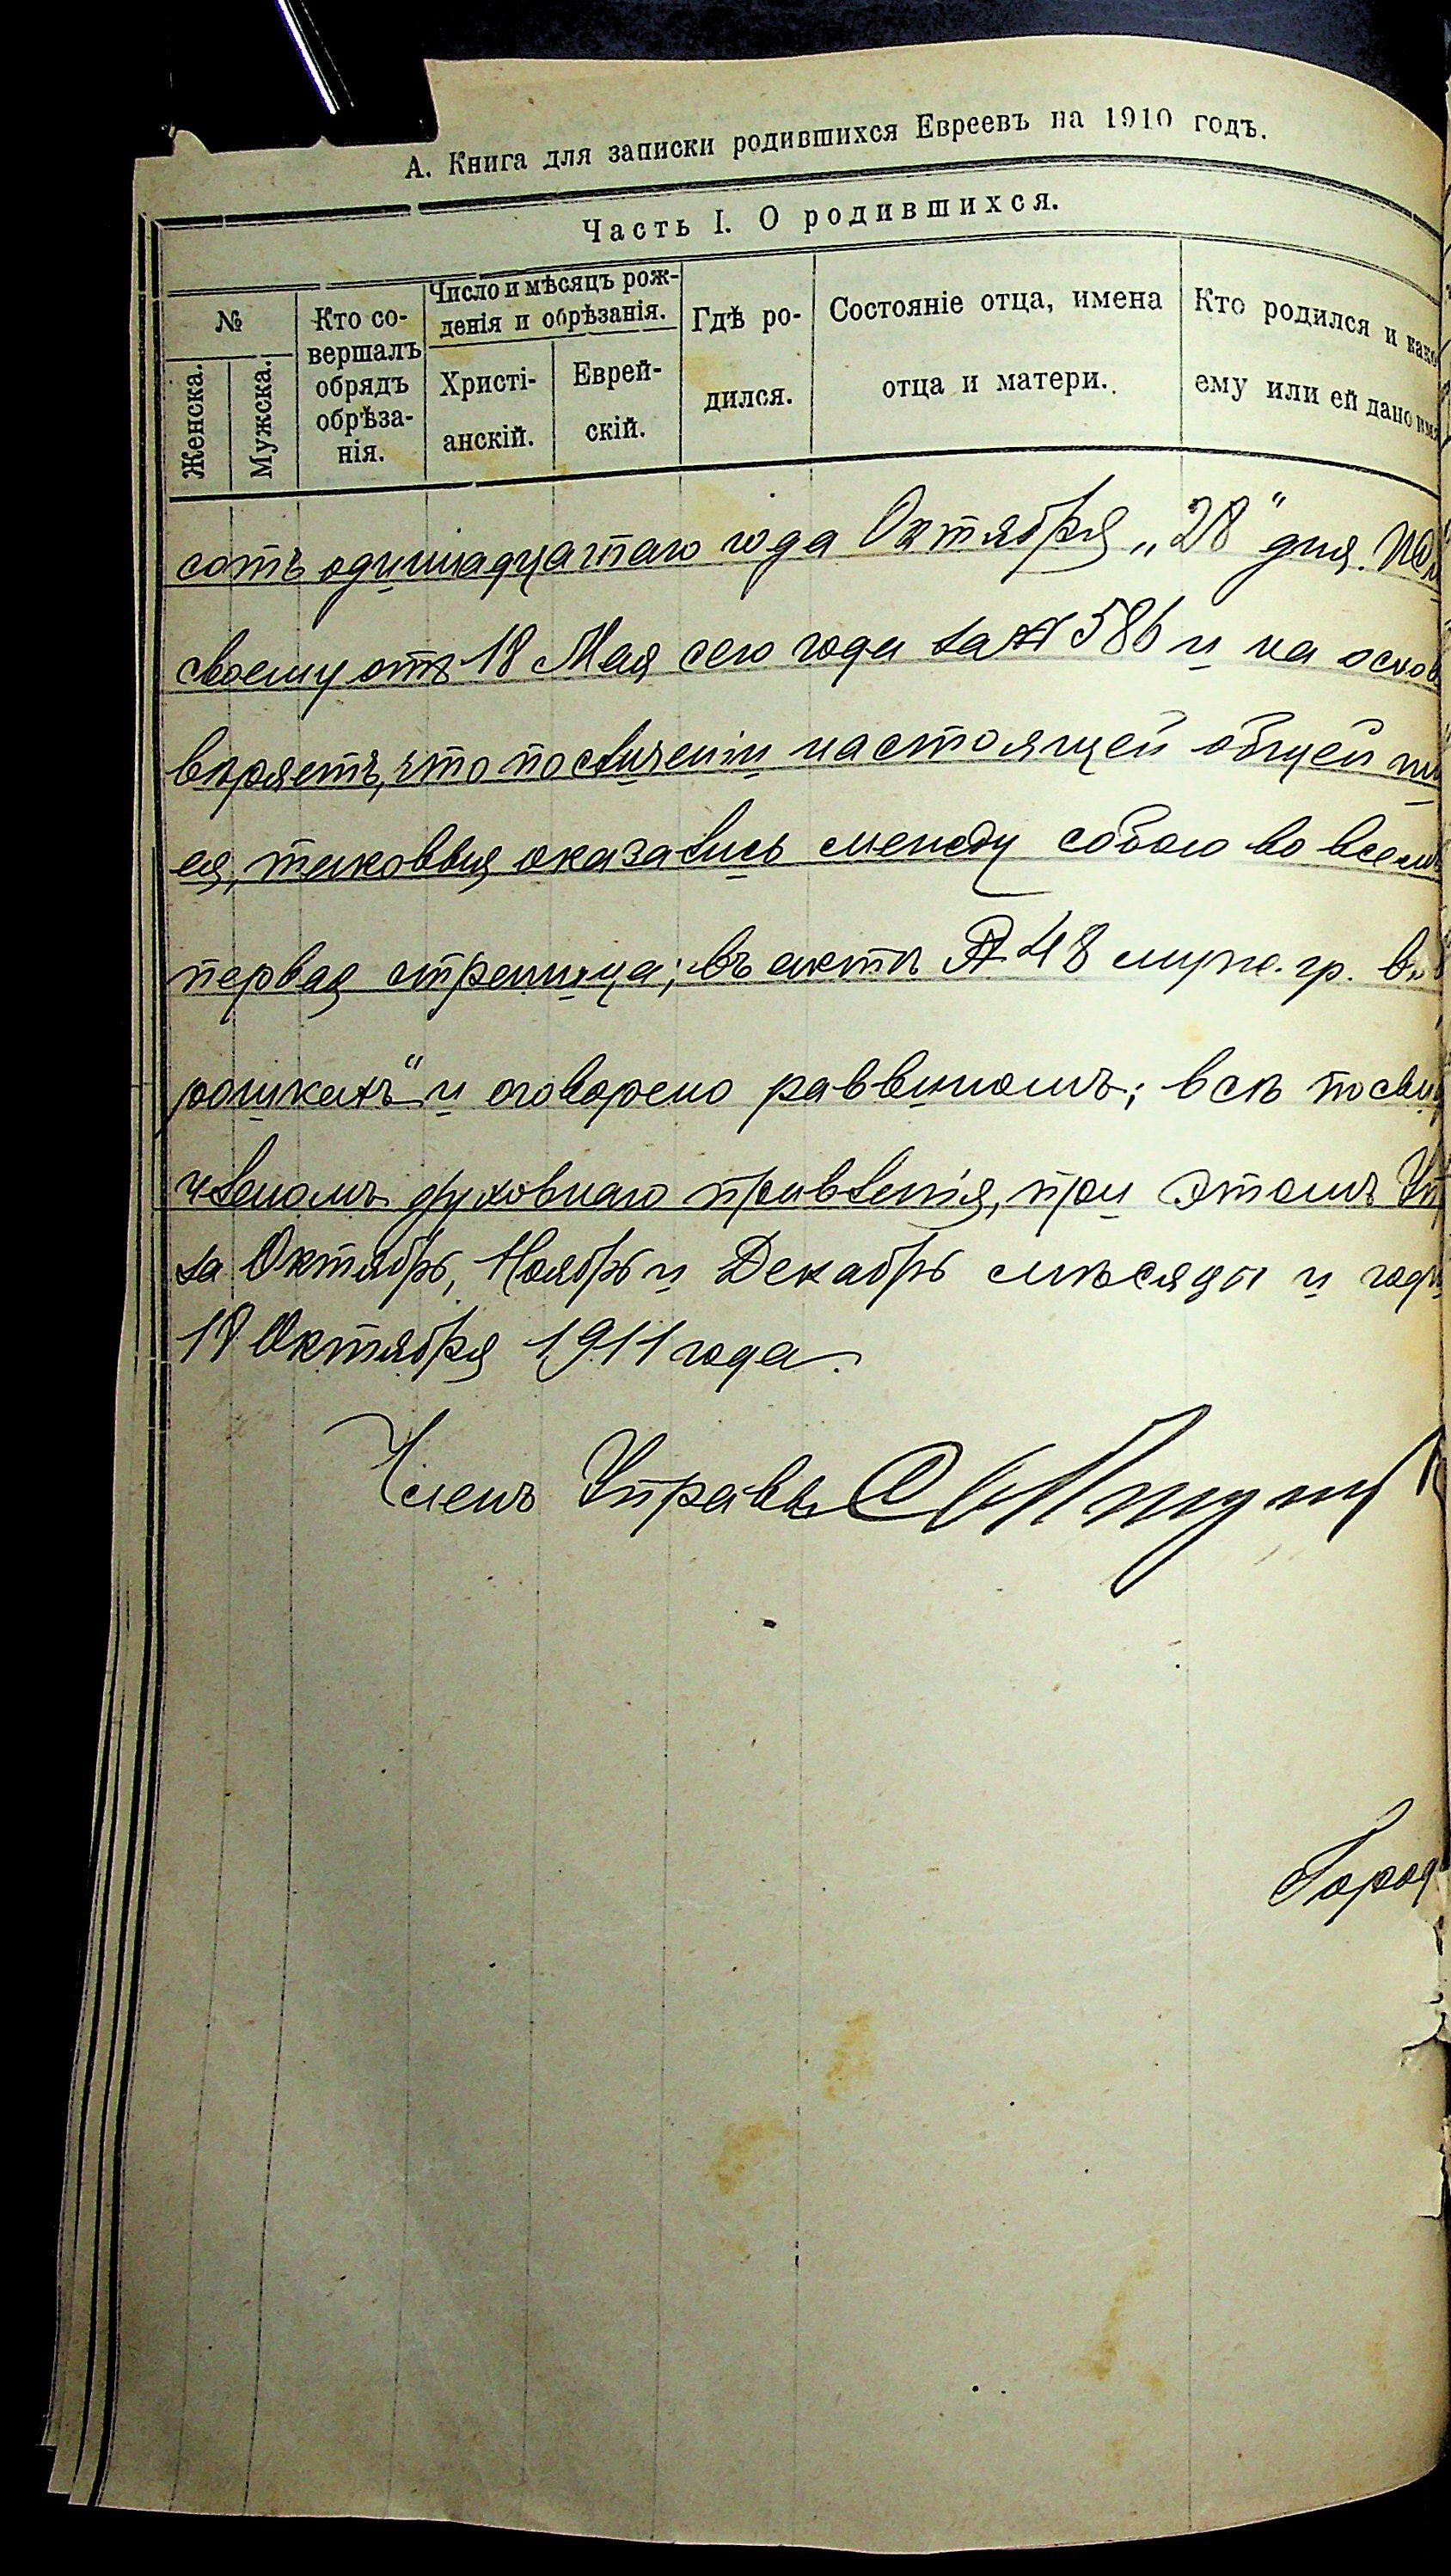 А. Книга для записки родившихся Евреевъ на 1910 годъ.
Часть I. О родившихся.
№
Женска.
Мужска.
Кто со-
вершалъ
обрядъ
обрѣза-
нія.
Число и мѣсяцъ рож-
денія и обрѣзанія.
Христі-
анскій.
Еврей-
скій.
Гдѣ ро-
дился.
Состояніе отца, имена
отца и матери.
Кто родился и како
ему или ей дано имя
сотъ одиннадцатаго года Октября „28" дня.
своему отъ 18 Мая сего года за № 586 и на основ
вѣряетъ, что по сличеніи настоящей общей
ея, таковыя оказались между собою во всемъ
первая страница; въ актѣ № 48 муж. гр.
и оговорено раввиномъ; всѣ
членомъ духовнаго правленія, при этомъ
за Октябрь, Ноябрь и Декабрь мѣсяцы и
18 Октября 1911 года.
Членъ Управы
Город